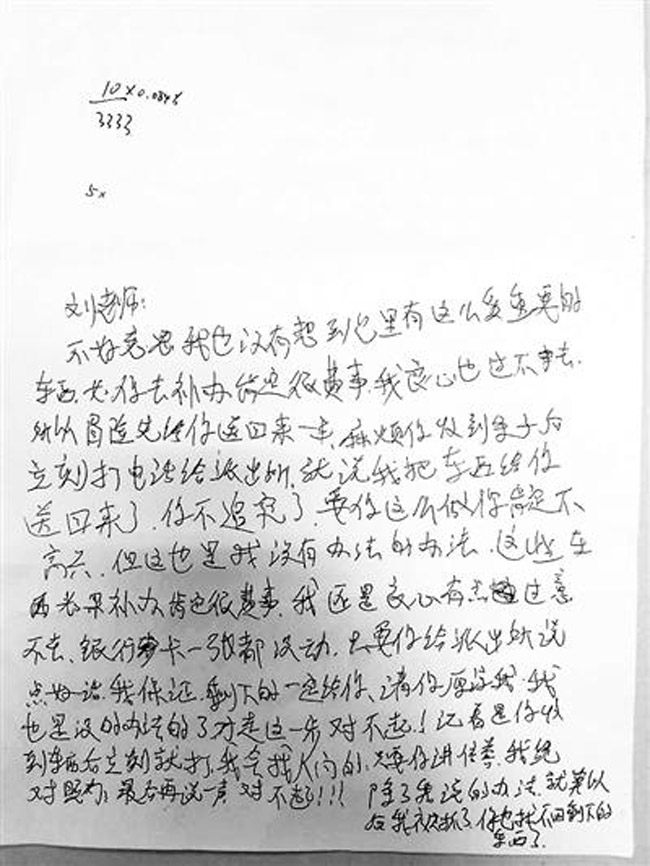 10×0.084
3333
5×
刘老师：
不好意思我也没有想到包里有这么多重要的
东西.你去补办肯定很费事.我良心也过不去.
所以冒险先给你送回来一半.麻烦你收到东子后
立刻打电话给派出所,就说我把东西给你
送回来了.你不追究了.要你这么做你肯定不
高兴.但这也是我没有办法的办法.这些东
西如果补办肯定很费事.我还是良心有点过意
不去.银行卡一张都没动.只要你给派出所说
点好话.我保证.剩下的一定给你.请你原谅我.我
也是没的办法的了才走这一步对不起!记着是你收
到东西后立刻就打,我会找人问的.只要你讲信誉.我绝
对照办;最后再说一声 对不起了!!!
除了我说的办法.就算以
后我被抓了.你也找不回剩下的
东西了.